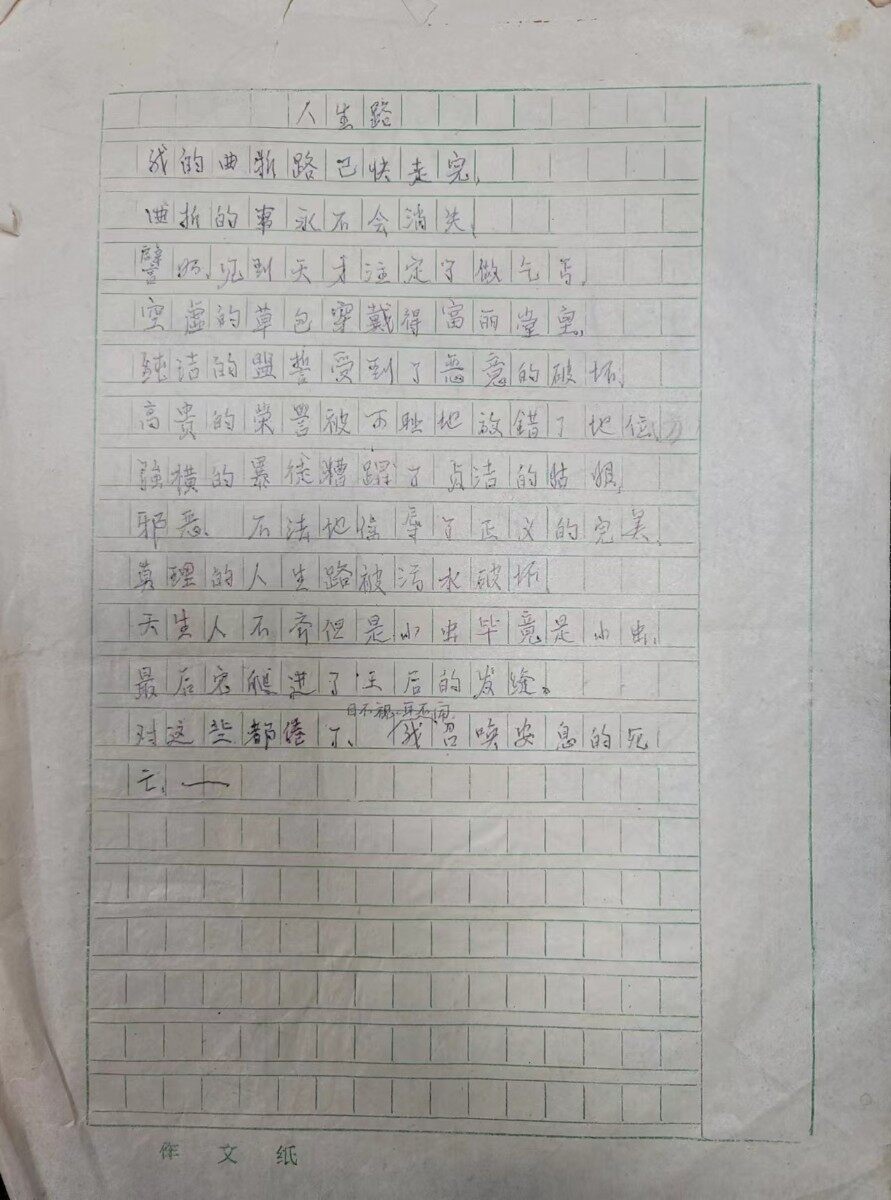 人生路
我的曲折路已快走完,
曲折的事永不会消失,
譬如、见到天才注定了做乞丐,
空虚的草包穿戴得富丽堂皇,
純洁的盟誓受到了恶意的破坏,
高贵的荣誉被可耻地放錯了地位,
強横的暴徒糟蹋了贞洁的姑娘,
邪恶、不法地侮辱了正义的完美,
真理的人生路被污水破坏,
天生人不齐但是小虫毕竟是小虫,
最后它爬进了王后的发缝。
目不视、耳不闻
对这些都倦了、我召唤安息的死
亡,——
作文纸